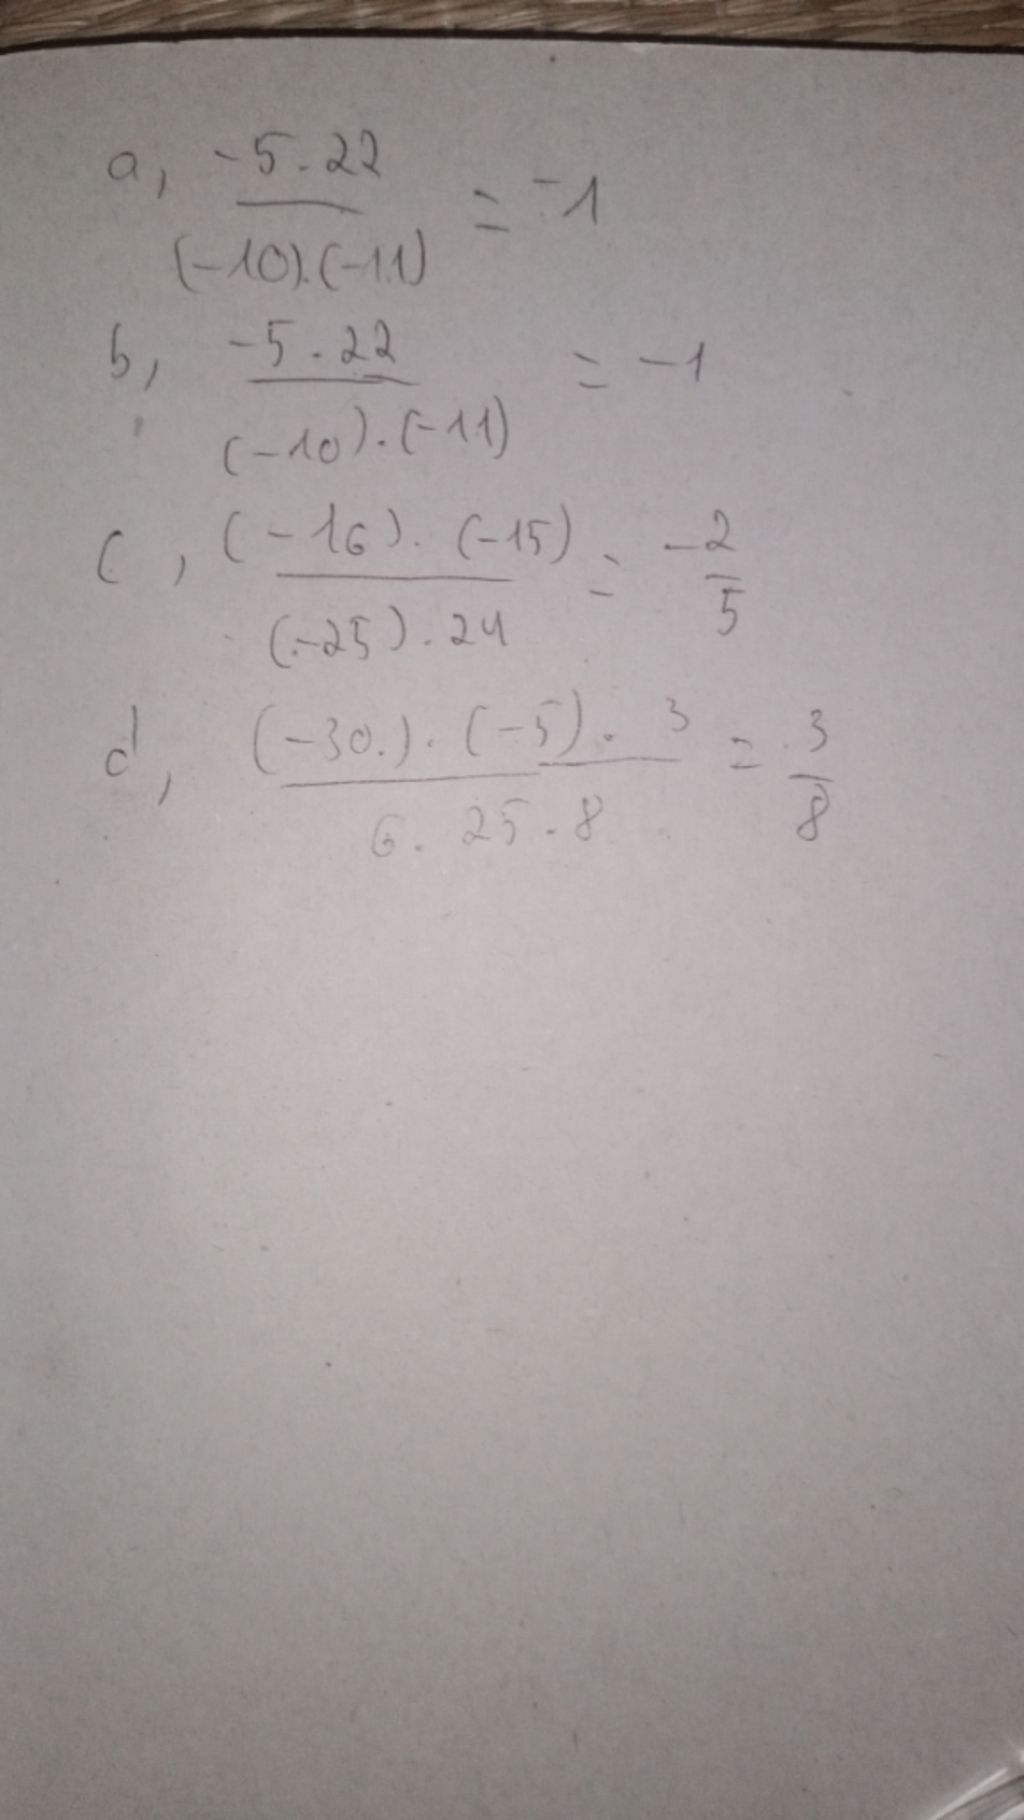 a, -5.22 / (-10).(-11) = -1
b, -5.22 / (-10).(-11) = -1
c, (-16).(-15) / (-25).24 = -2/5
d, (-30).(-5).3 / 6.25.8 = 3/8